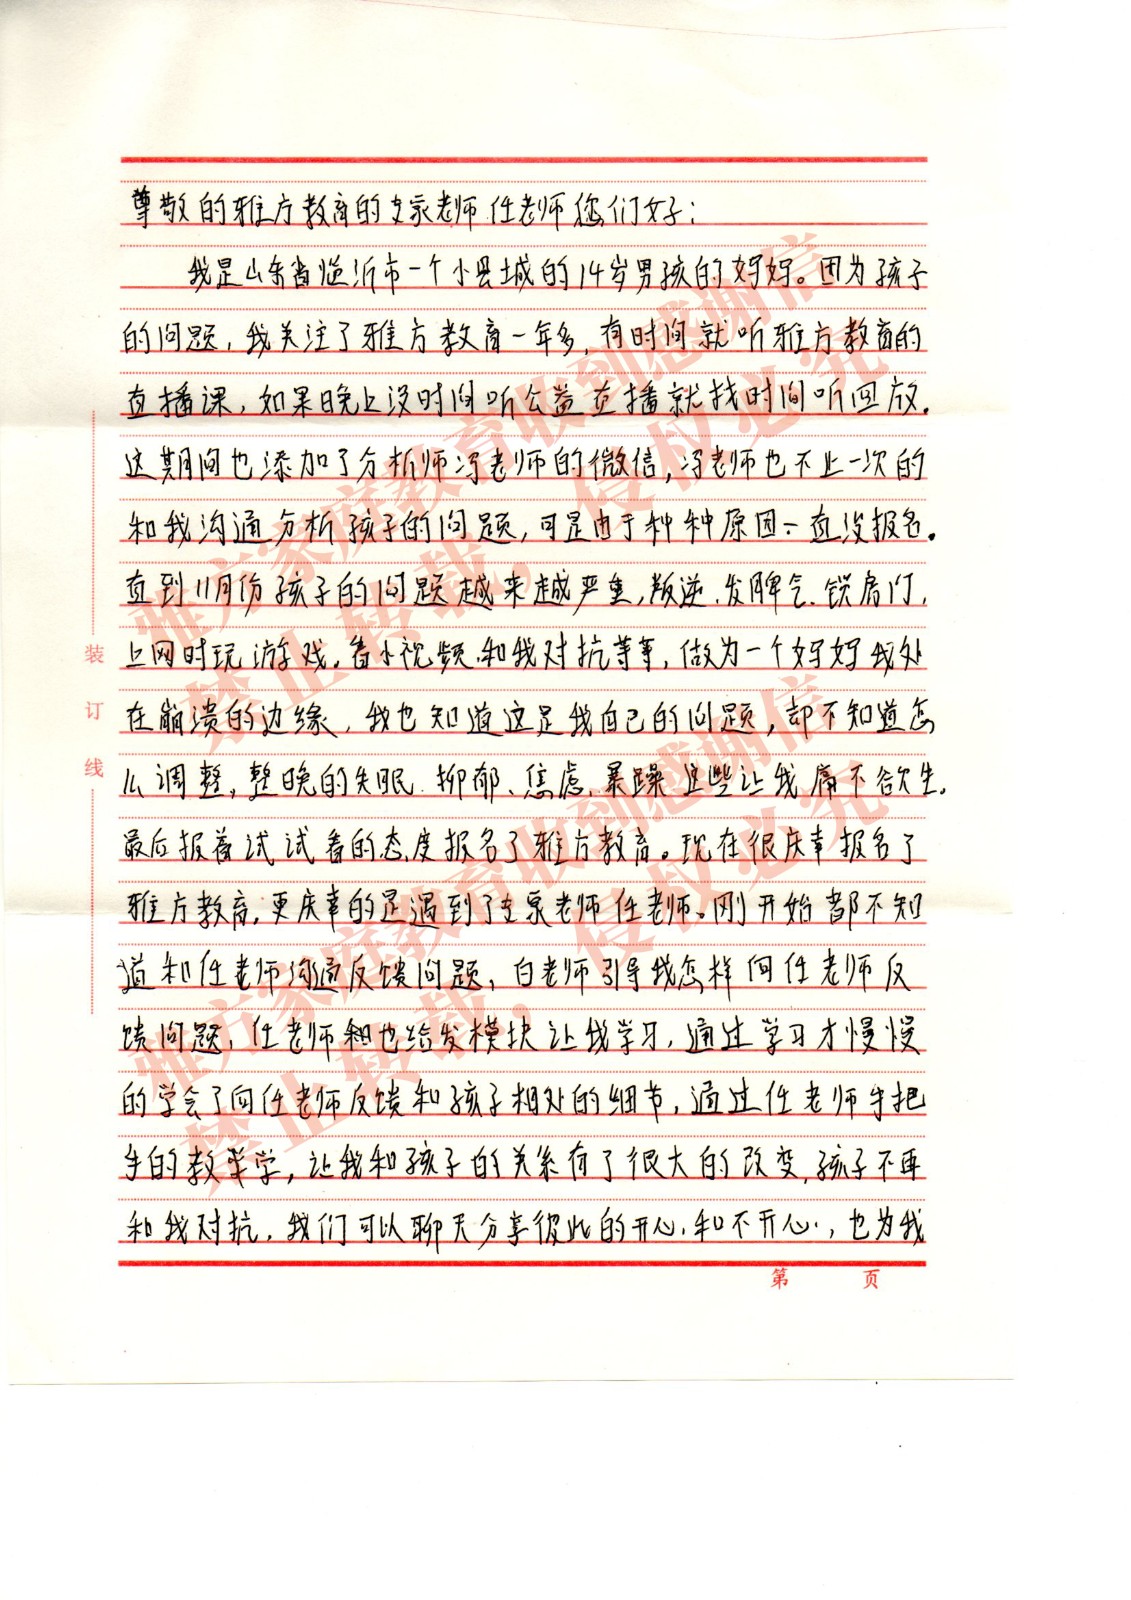 尊敬的雅方教育的专家老师任老师您们好：
我是山东省临沂市一个小县城的14岁男孩的妈妈。因为孩子
的问题，我关注了雅方教育一年多，有时间就听雅方教育的
直播课，如果晚上没时间听公益直播就找时间听回放。
这期间也添加了分析师冯老师的微信，冯老师也不止一次的
和我沟通分析孩子的问题，可是由于种种原因一直没报名。
直到11月份孩子的问题越来越严重，叛逆、发脾气、锁房门，
上网时玩游戏，看小视频，和我对抗等事，做为一个妈妈我处
在崩溃的边缘，我也知道这是我自己的问题，却不知道怎
么调整，整晚的失眠、抑郁、焦虑、暴躁这些让我痛不欲生。
最后报着试试看的态度报名了雅方教育。现在很庆幸报名了
雅方教育，更庆幸的是遇到了专家老师任老师。刚开始都不知
道和任老师沟通反馈问题，白老师引导我怎样向任老师反
馈问题，任老师也给发模块让我学习，通过学习才慢慢
的学会了向任老师反馈和孩子相处的细节，通过任老师手把
手的教学，让我和孩子的关系有了很大的改变，孩子不再
和我对抗，我们可以聊天分享彼此的开心和不开心，也为我
第 页
装
订
线
雅方家庭教育收到感谢信
禁止转载，侵权必究
雅方家庭教育收到感谢信
禁止转载，侵权必究